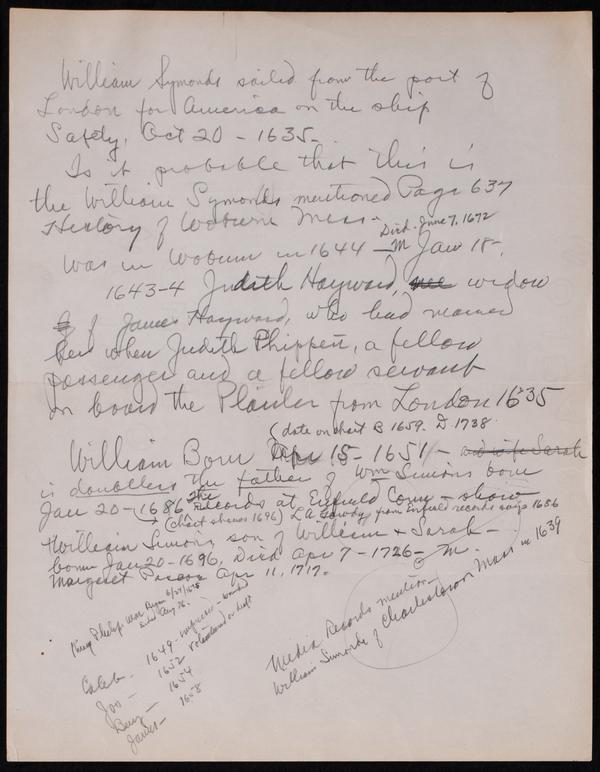 William Symonds sailed from the port of
London for America on the ship
Safety, Oct 20 - 1635.
Is it probable that this is
the William Symonds mentioned Page 637
History of Woburn Mass -
Died June 7, 1672
Was in Woburn in 1644 - M Jan 18-
1643-4 Judith Hayward, widow
of James Hayward, who had married
her when Judith Phippen, a fellow
passenger and a fellow servant
on board the Planter from London 1635
(date on chart B 1659. D 1738.
William Born Apr 15 - 1651 - and wife Sarah
is doubtless the father of Wm Simons born
Jan 20 - 1686 The records at Enfield Conn - show
(chart shows 1696) from Enfield records says 1686
William Simons, son of William & Sarah -
born Jan 20 - 1696, Died Apr 7 - 1726 - M.
Margaret Apr 11, 1717.
King Philips War Began 6/24/1675
Ended Aug 76.
Caleb - 1649 -
Jos - 1652 Volunteered or left
Benj - 1654
James - 1658
Media Records mention -
William Simonds of Charlestown Mass in 1639